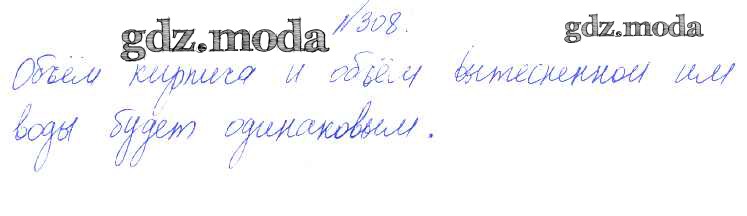 №308.
gdz.moda
gdz.moda
Объём кирпича и объём вытесненной им
воды будет одинаковым.